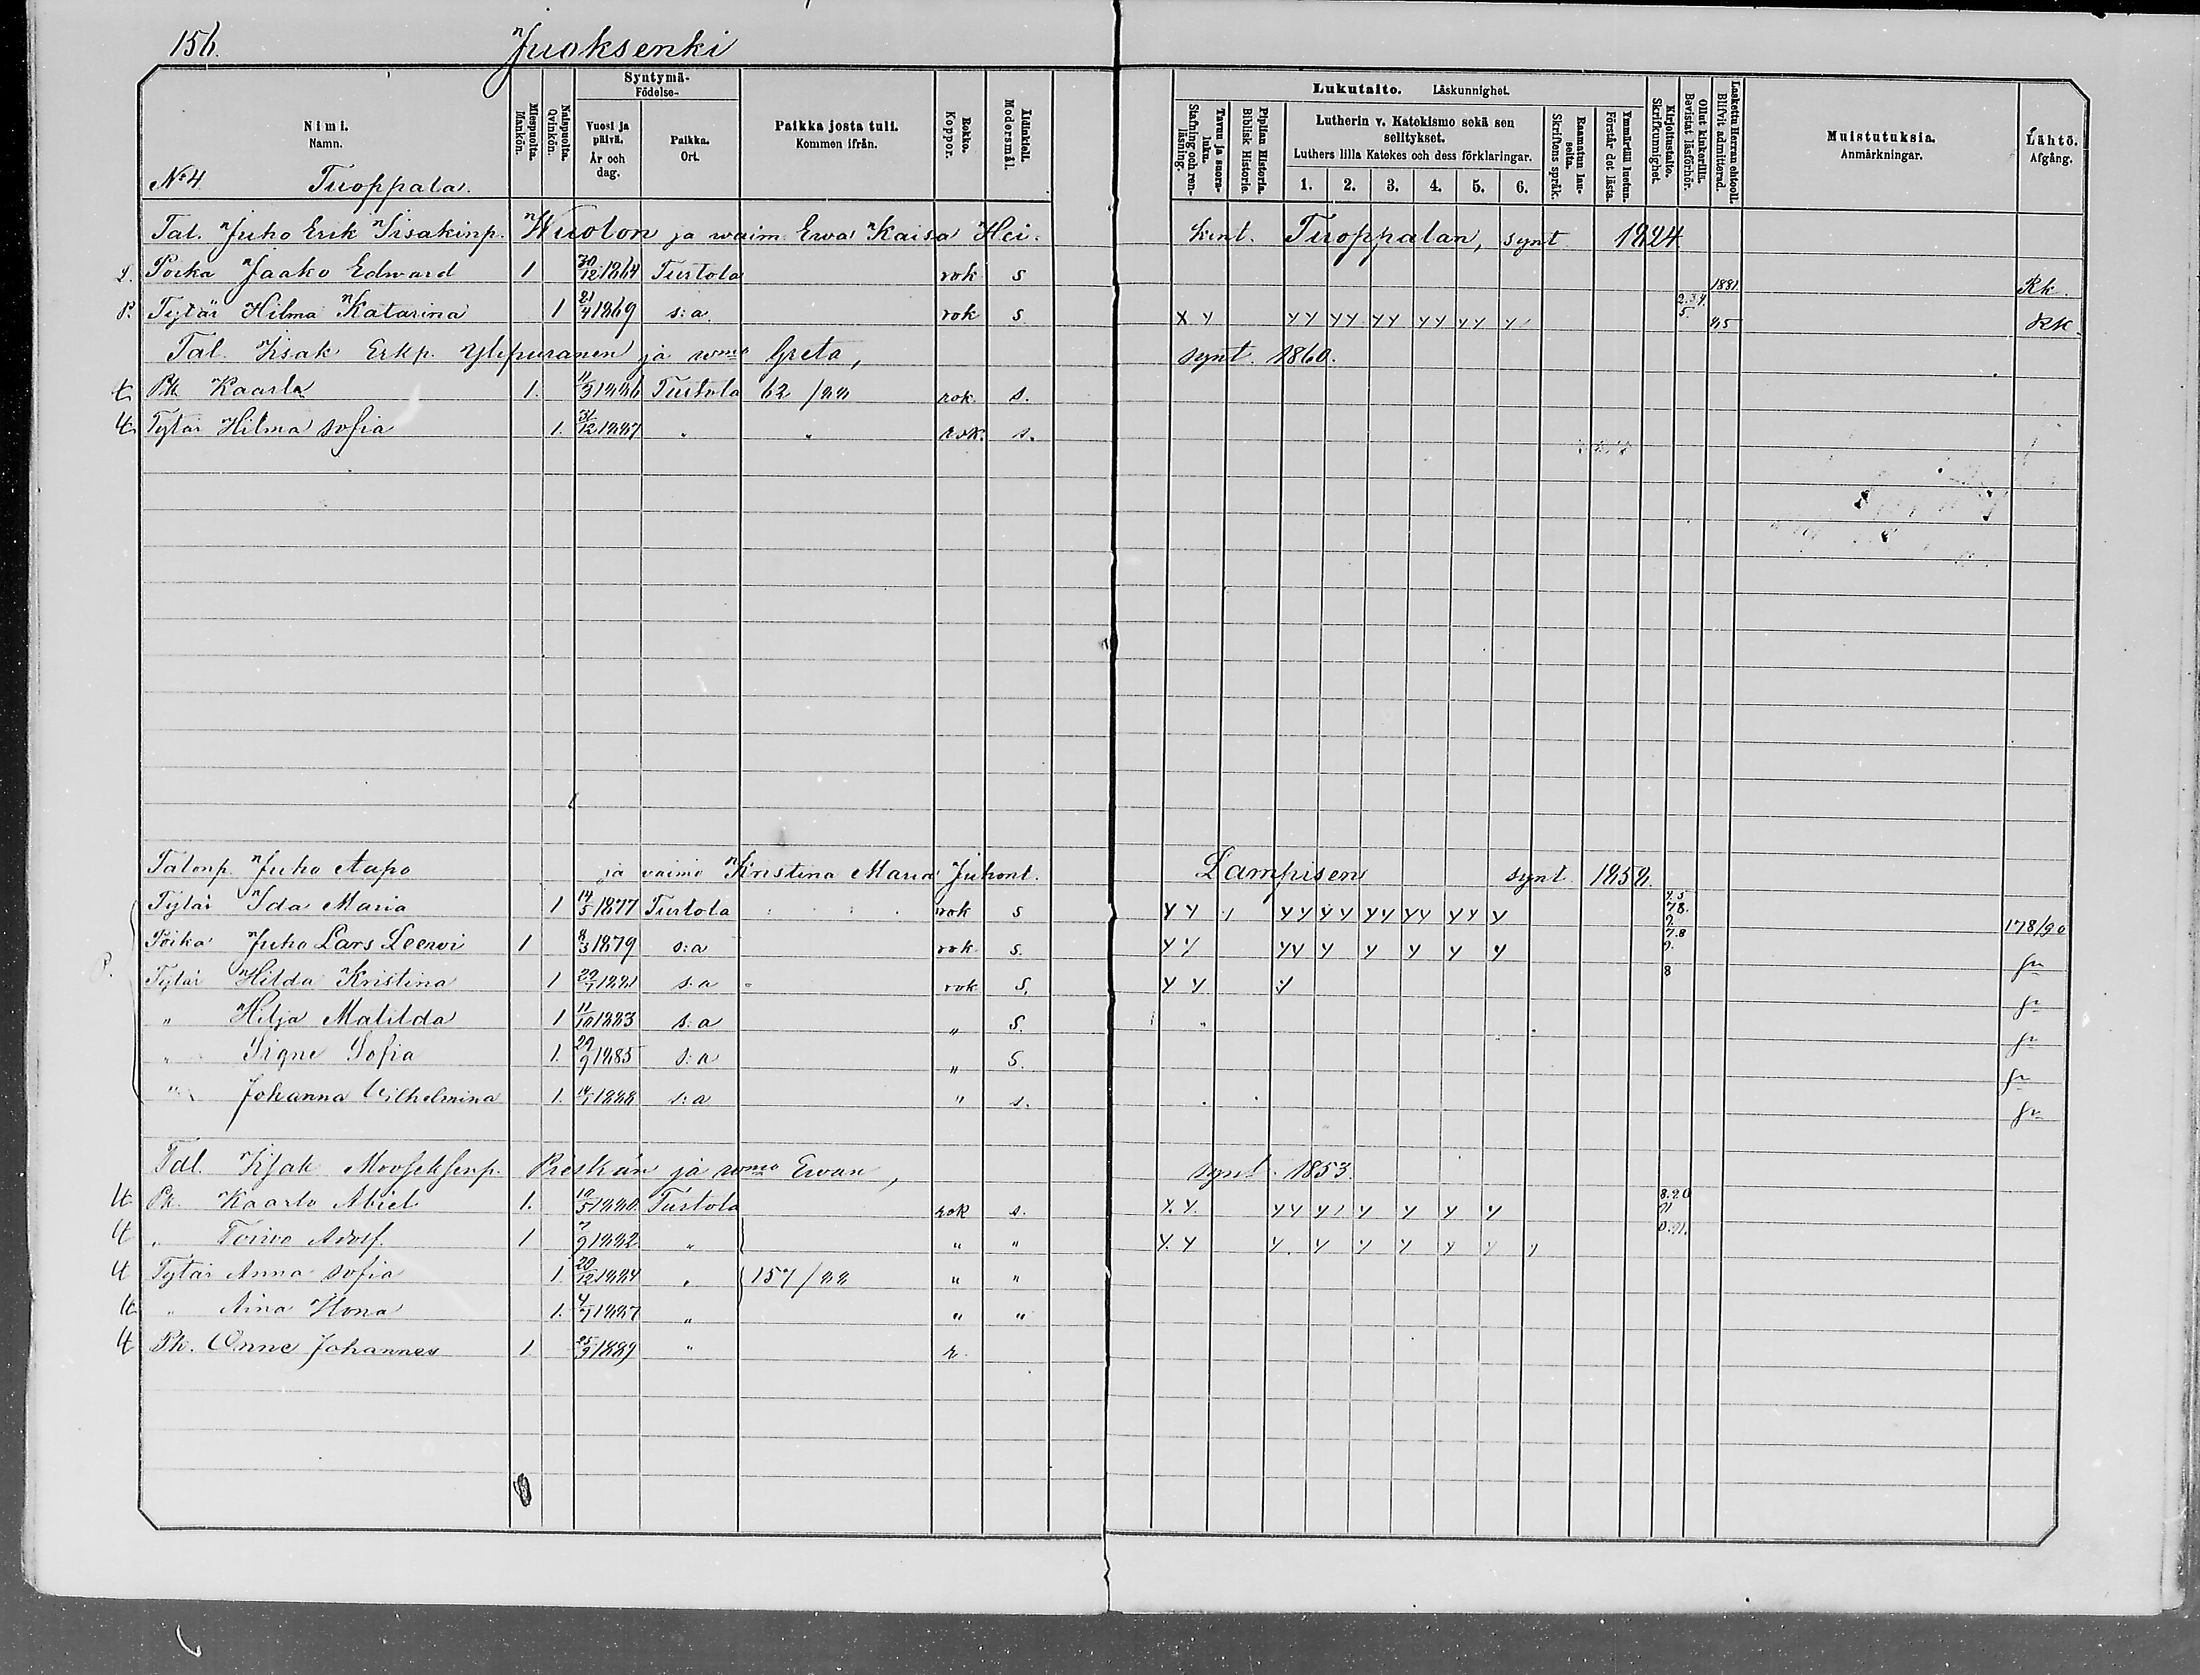 156. Juoksenki
Nimi. Namn.
Miespuolta. Mankön.
Naispuolta. Qvinkön.
Syntymä- Födelse-
Vuosi ja päivä. År och dag.
Paikka. Ort.
Paikka josta tuli. Kommen ifrån.
Rokko. Koppor.
Äidinkieli. Modersmål.
Lukutaito. Läskunnighet.
Tavuu ja suora- luku. Stafning och ren- läsning.
Piplian Historia. Biblisk Historie.
Lutherin v. Katekismo sekä sen selitykset.
Luthers lilla Katekes och dess förklaringar.
1. 2. 3. 4. 5. 6.
Raamatun lau- seita. Skriftens språk.
Ymmärtää luetun. Förstår det lästa.
Kirjoitustaito. Skrifkunnighet.
Ollut kinkerillä. Bevistat läsförhör.
Laskettu Herran ehtooll. Blifvit admitterad.
Muistutuksia. Anmärkningar.
Lähtö. Afgång.
No 4. Tuoppala.
Tal. Juho Erik Iisakinp. Wuolon ja waim. Ewa Kaisa Hei. kint. Tuoppalan, synt 1824
Poika Jaako Edward 1 30/12 1864 Turtola rok s 1881 Rk.
P. Tytär Hilma Katarina 1 21/4 1869 s:a rok s x y yy yy yy yy yy y 85 RK
Tal. Iisak Erkp. Ylipuranen ja wmo Greta, synt. 1860.
Pk Kaarlo 1. 11/3 1886 Turtola 62/88 rok. s.
Tytär Hilma Sofia 1. 31/12 1887 " " rok. s.
Talonp. Juho Aapo ja vaimo Kristina Maria Juhont. Lampisen synt 1858.
Tytär Ida Maria 1 14/5 1877 Turtola rok s y y yy yy yy yy yy y 178/90
Poika Juho Lars Leewi 1 8/3 1879 s:a rok s. y y yy y y y y y
Tytär Hilda Kristina 1 29/1 1881 s:a rok s. y y y 8
" Hilja Matilda 1 11/10 1883 s:a " s.
" Signe Sofia 1. 29/9 1885 s:a " s.
" Johanna Wilhelmina 1. 14/1 1888 s:a " s.
Tal. Iisak Mooseksenp. Priskin ja wmo Ewan, synt. 1853.
Pk. Kaarlo Abiel 1. 10/5 1880 Turtola rok s. y. y. yy y y y y y
" Toiwo Adolf. 1 7/9 1882 " " " y. y y. y y y y y y
Tytär Anna Sofia 1. 20/12 1884 " 157/88 " "
" Aina Ilona 1. 4/7 1887 " " "
Pk. Onne Johannes 1. 25/9 1889 " r.